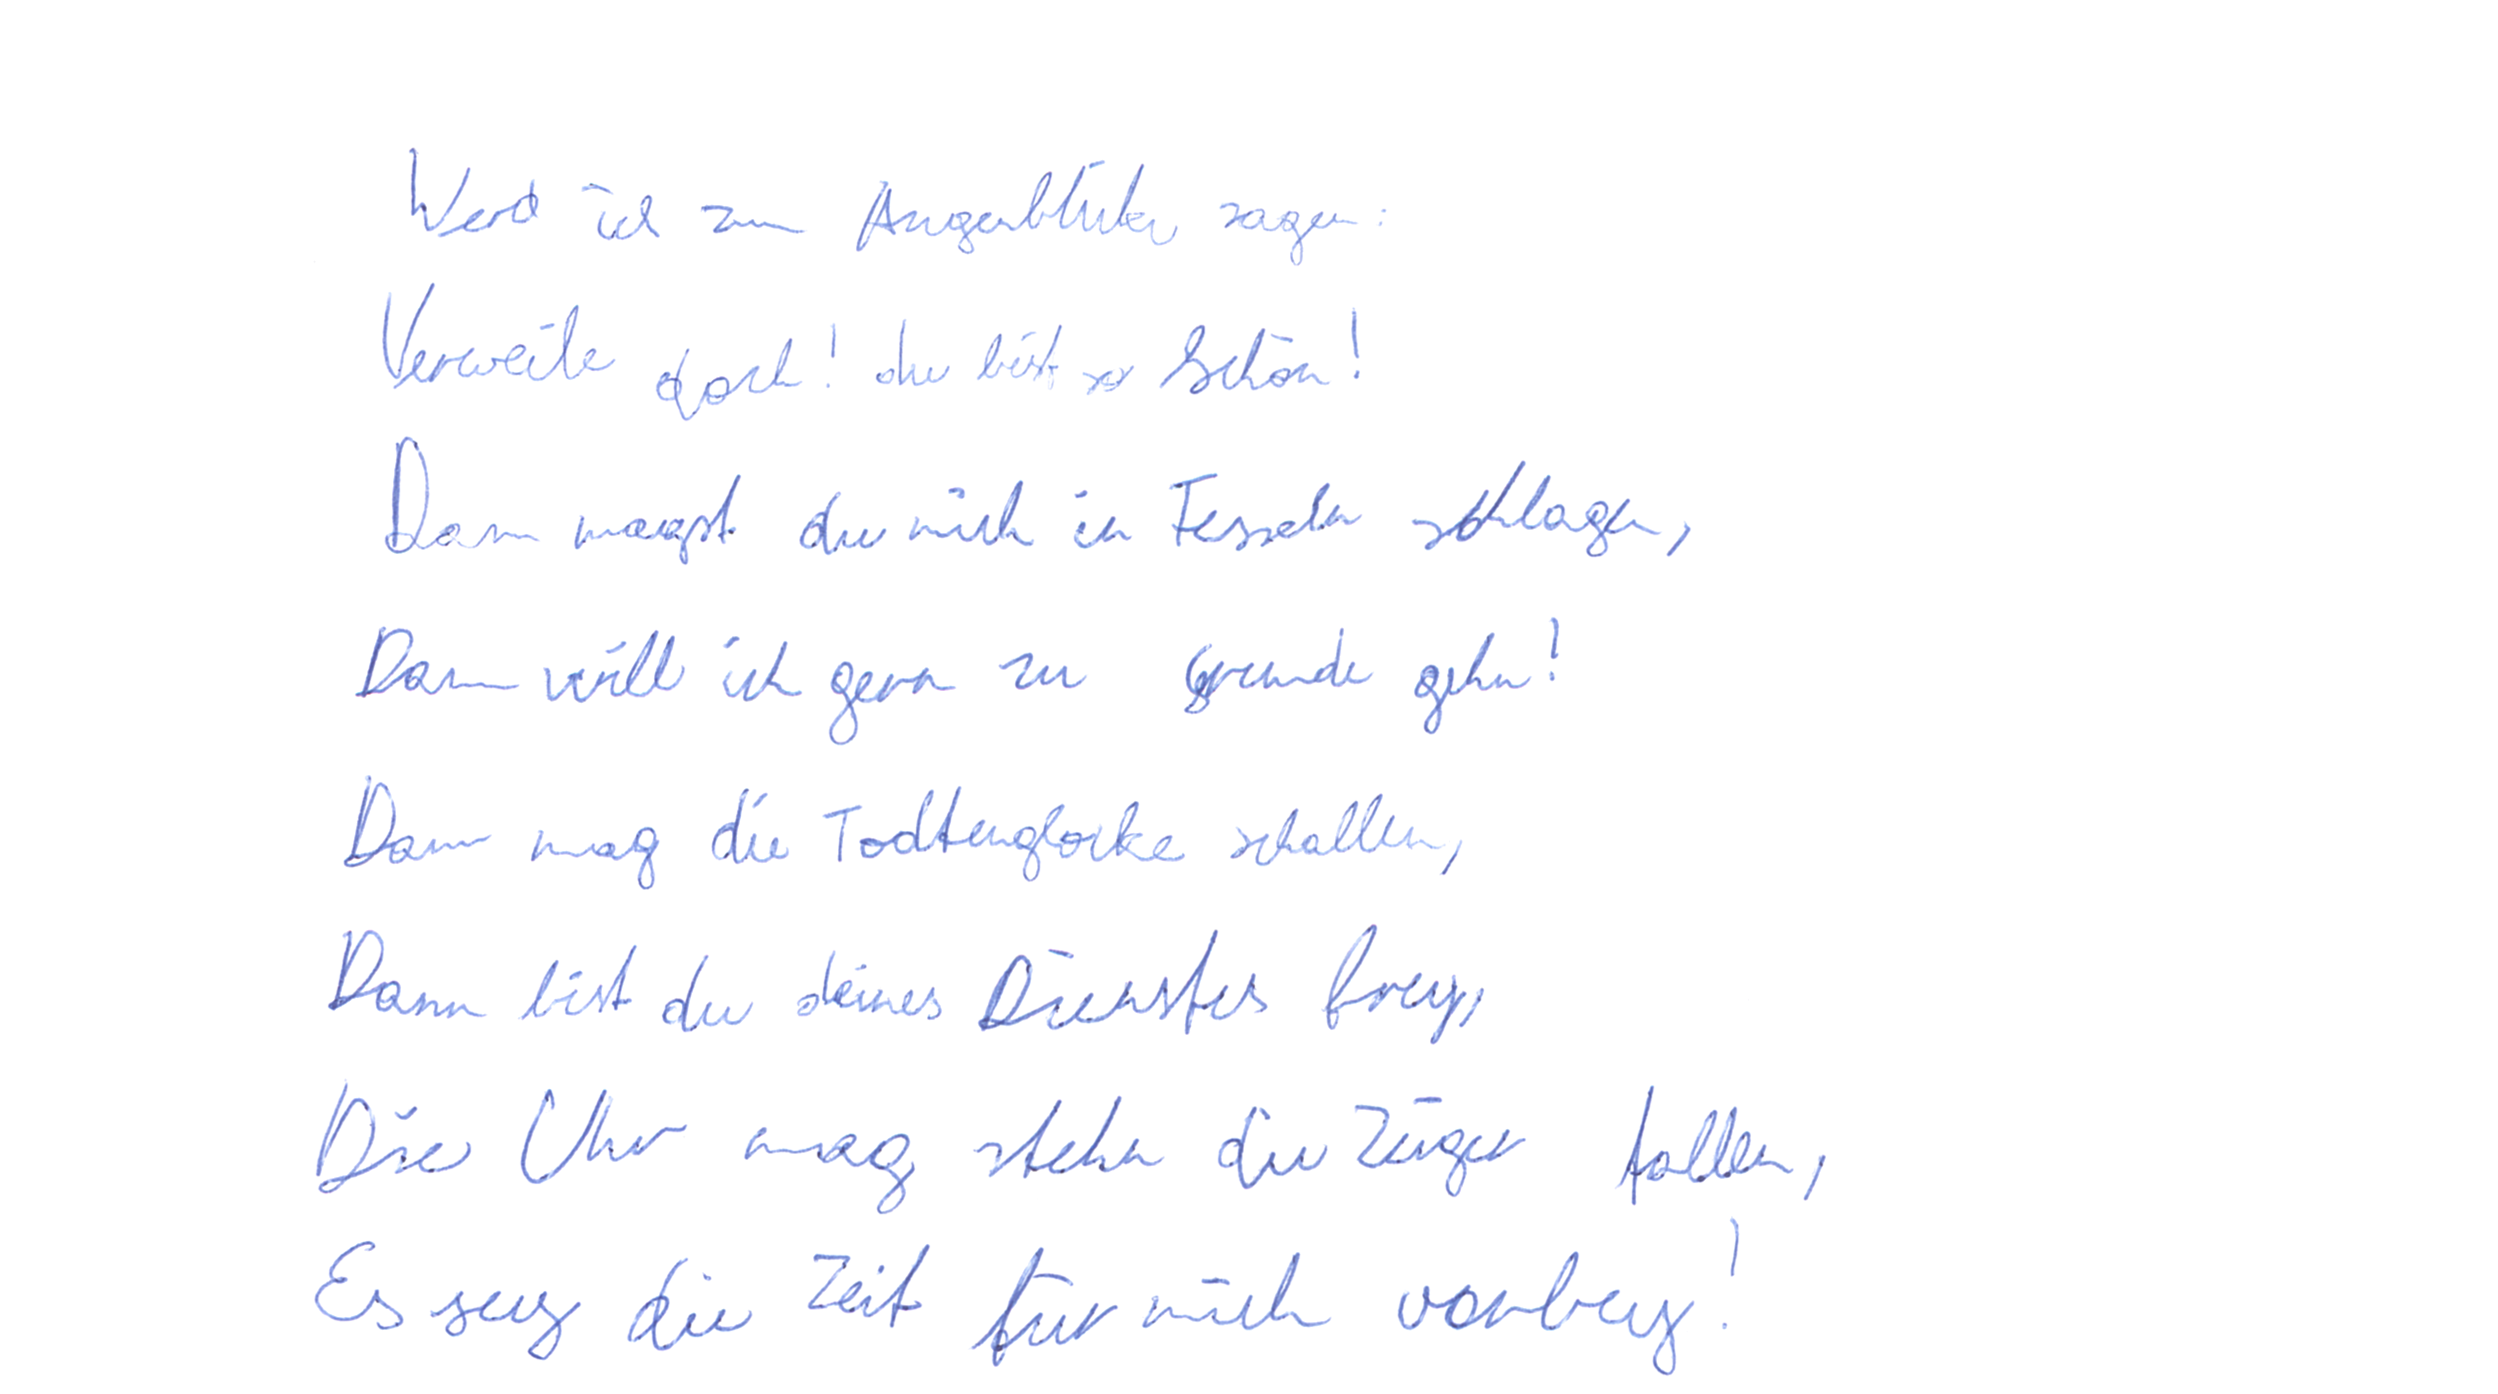 Werd ich zum Augenblicke sagen:
Verweile doch! du bist so schön!
Dann magst du mich in Fesseln schlagen,
Dann will ich gern zu Grunde gehn!
Dann mag die Todtenglocke schallen,
Dann bist du deines Dienstes frey,
Die Uhr mag stehn der Zeiger fallen,
Es sey die Zeit für mich vorbey!